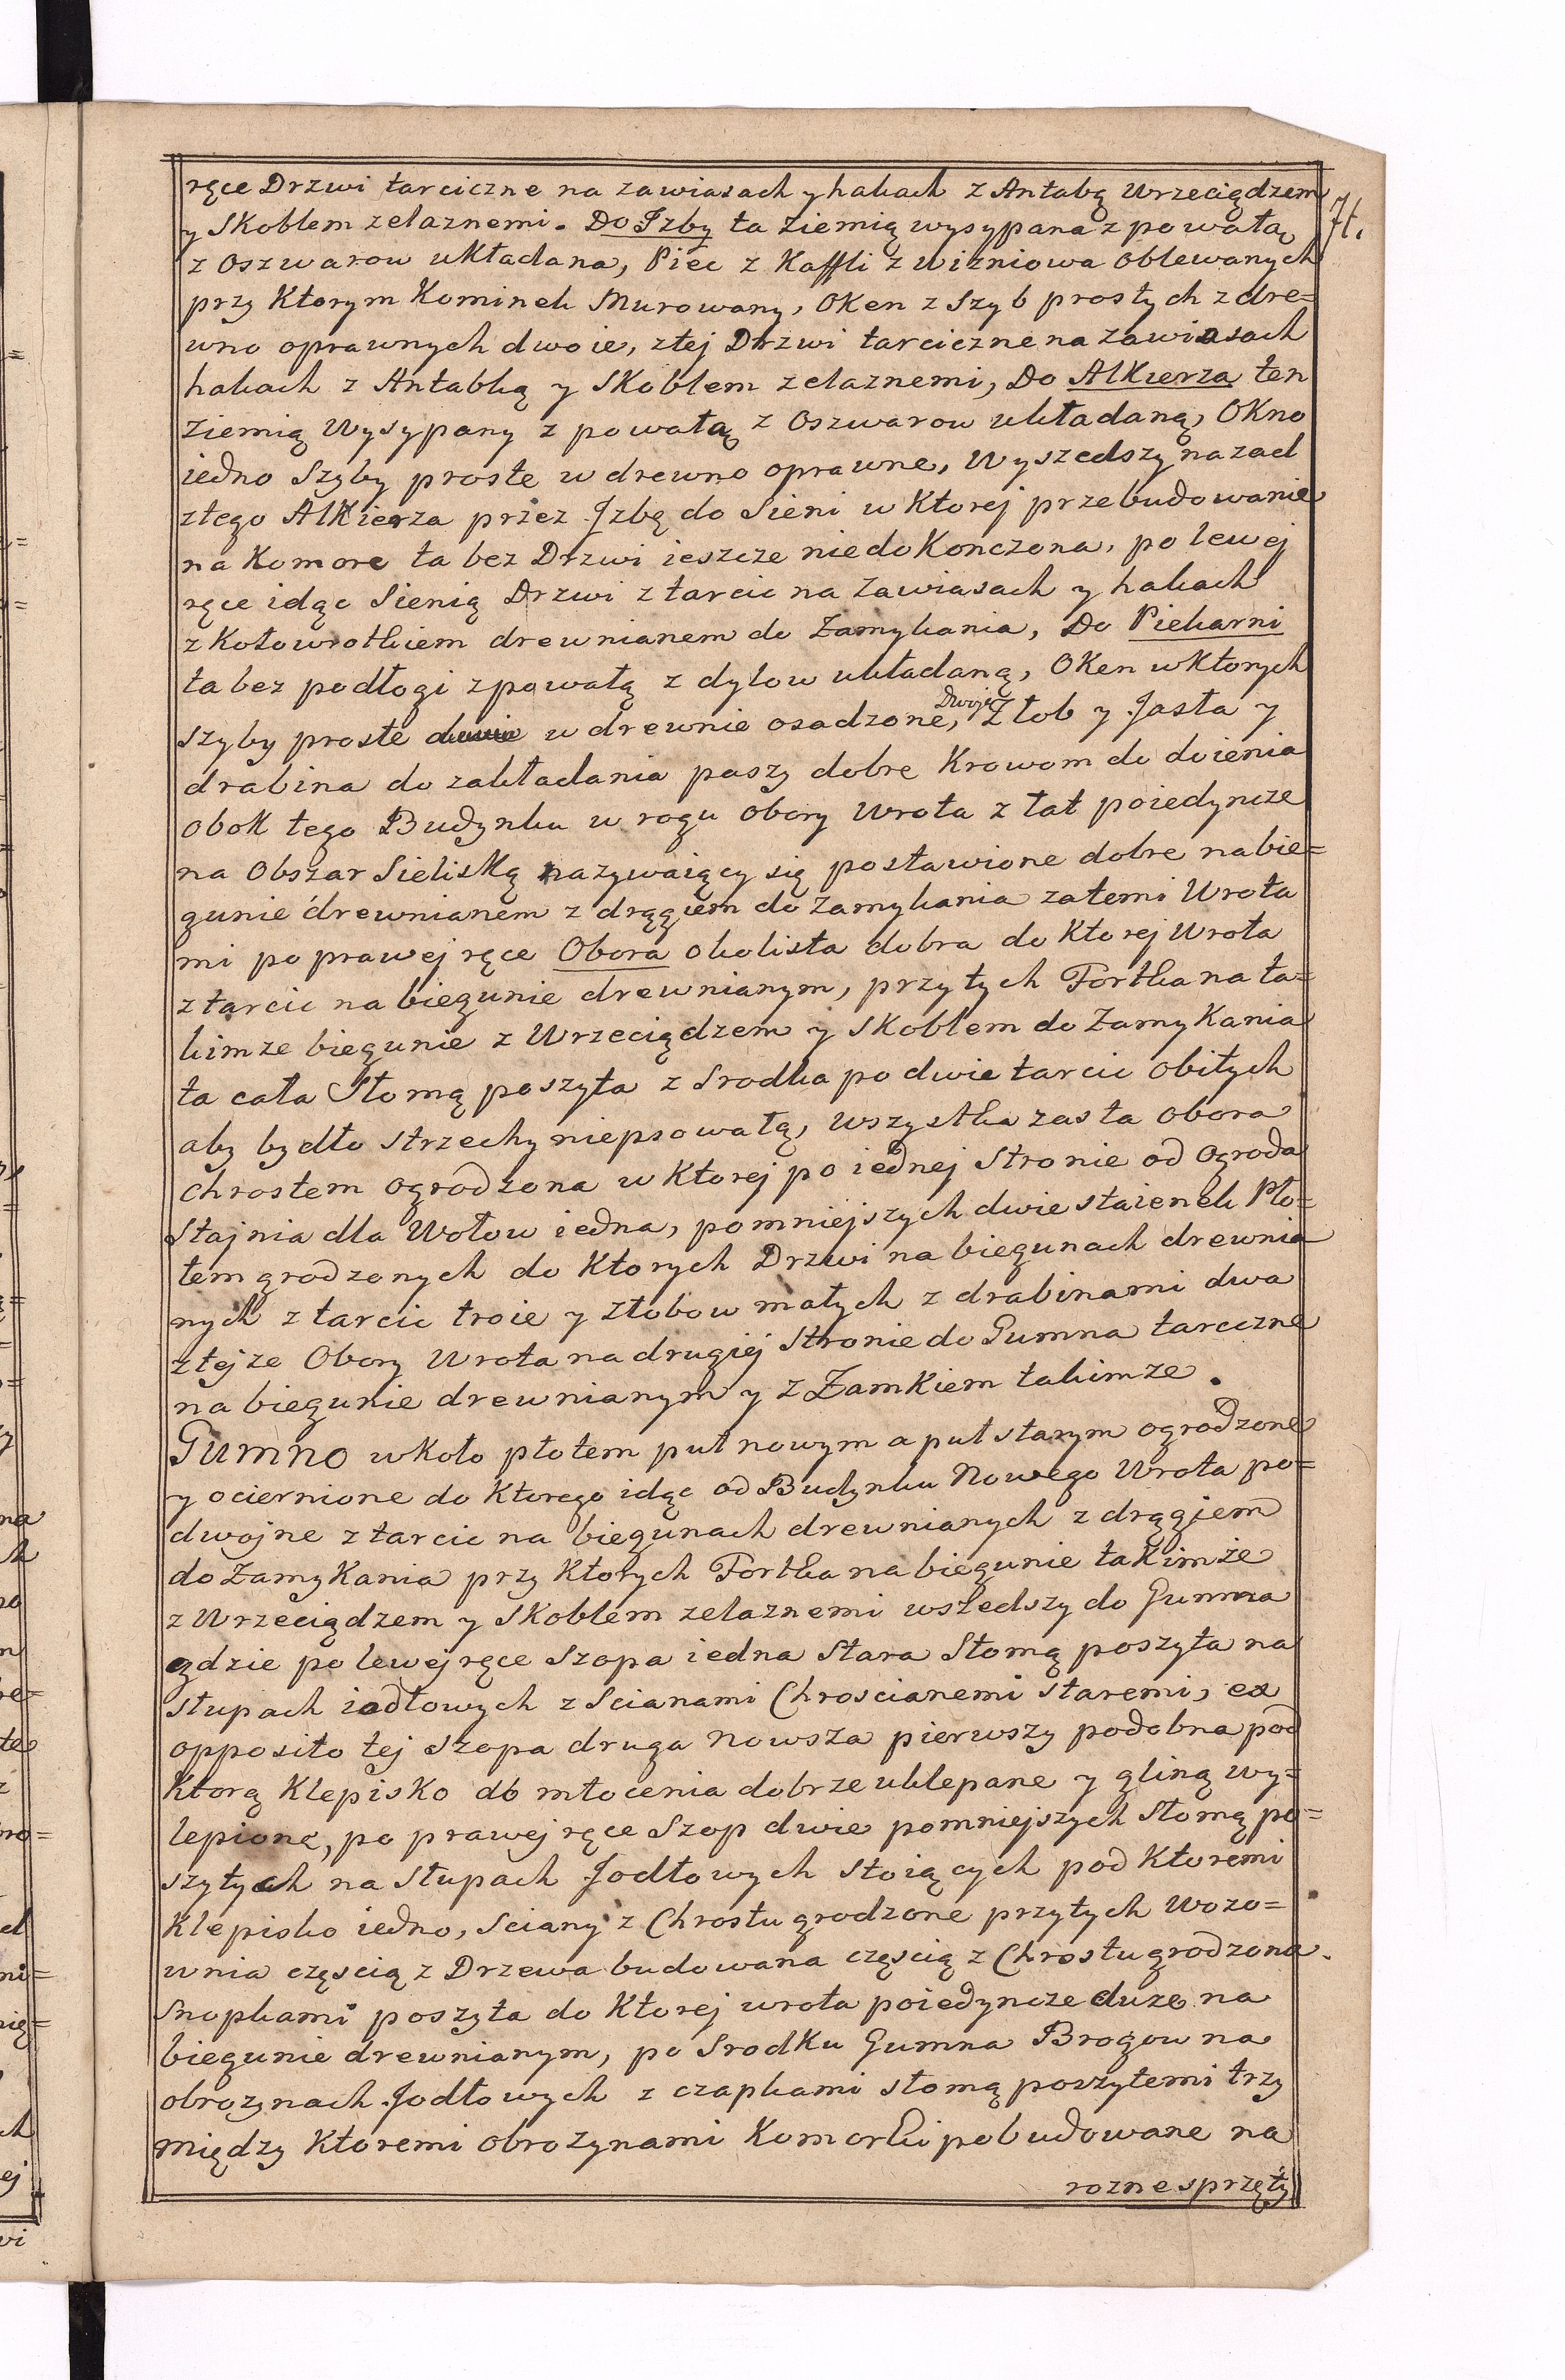 ręce Drzwi tarciczne na zawiasach y hakach z Antabą Wrzeciądzem
y Skoblem zelaznemi. Do Izby ta Ziemią wysypana z powałą
71.
z Oszwarow układana, Piec z Kaffli z wizniowa oblewanych
przy Ktorym Kominek Murowany, Oken z Szyb prostych z dre=
wno oprawnych dwoie, ztej Drzwi tarciczne na zawiasach
hakach z Antabką y Skoblem zelaznemi, Do Alkierza ten
Ziemią Wysypany z powałą z Oszwarow układaną, Okno
iedno Szyby proste w drewno oprawne, Wyszedszy nazad
ztego Alkierza przez Jzbę do Sieni w Ktorej przebudowanie
na Komore ta bez Drzwi ieszcze niedokonczona, po lewej
ręce idąc Sienią Drzwi z tarcic na Zawiasach y hakach
z Kołowrotkiem drewnianem do Zamykania, Do Piekarni
ta bez podłogi z powałą z dylow układaną, Oken w Ktorych
Dwoje
szyby proste w drewnie osadzone, Złob y Jasła y
drabina do zakładania paszy dobre Krowom do doienia
obok tego Budynku w rogu obory Wrota z łat poiedyncze
na Obszar Sieliską nazywaiący się postawione dobre na bie=
gunie drewnianem z drągiem do Zamykania za temi Wrota
mi po prawej ręce Obora okolista dobra do Ktorej Wrota
z tarcic na biegunie drewnianym, przy tych Fortka na ta=
kimze biegunie z Wrzeciądzem y Skoblem do Zamykania
ta cała Słomą poszyta z Srodka po dwie tarcic obitych
aby bydło strzechy niepsowałą, wszystka zas ta obora
chrostem ogrodzona w Ktorej po iednej Stronie od Ogroda
Stajnia dla Wołow iedna, pomniejszych dwie staienek Pło=
tem grodzonych do Ktorych Drzwi na biegunach drewnia
nych z tarcic troie y złobow małych z drabinami dwa
z tejze Obory Wrota na drugiej Stronie do Gumna tarczne
na biegunie drewnianym y z Zamkiem takimze.
Gumno wkoło płotem puł nowym a puł starym ogrodzone
y ociernione do Ktorego idąc od Budynku Nowego Wrota po=
dwojne z tarcic na biegunach drewnianych z drągiem
do Zamykania przy Ktorych Fortka na biegunie takimże
z Wrzeciądzem y Skoblem zelaznemi wszedszy do Gumna
gdzie po lewej ręce Szopa iedna Stara Słomą poszyta na
słupach iodłowych z Scianami Chroscianemi staremi, ex
opposito tej szopa druga nowsza pierwszy podobna pod
Ktorą Klepisko do młocenia dobrze uklepane y gliną wy=
lepione, po prawej ręce Szop dwie pomniejszych Słomą po=
szytych na Słupach Jodłowych stoiących pod Ktoremi
Klepisko iedno, Sciany z Chrostu grodzone przy tych Wozo=
wnia częscią z Drzewa budowana częscią z Chrostu grodzona
Snopkami poszyta do Ktorej wrota poiedyncze duze na
biegunie drewnianym, po Srodku Gumna Brogow na
obrozynach Jodłowych z czapkami słomą poszytemi trzy
między Ktoremi obrozynami Komorki pobudowane na
rozne sprzęty